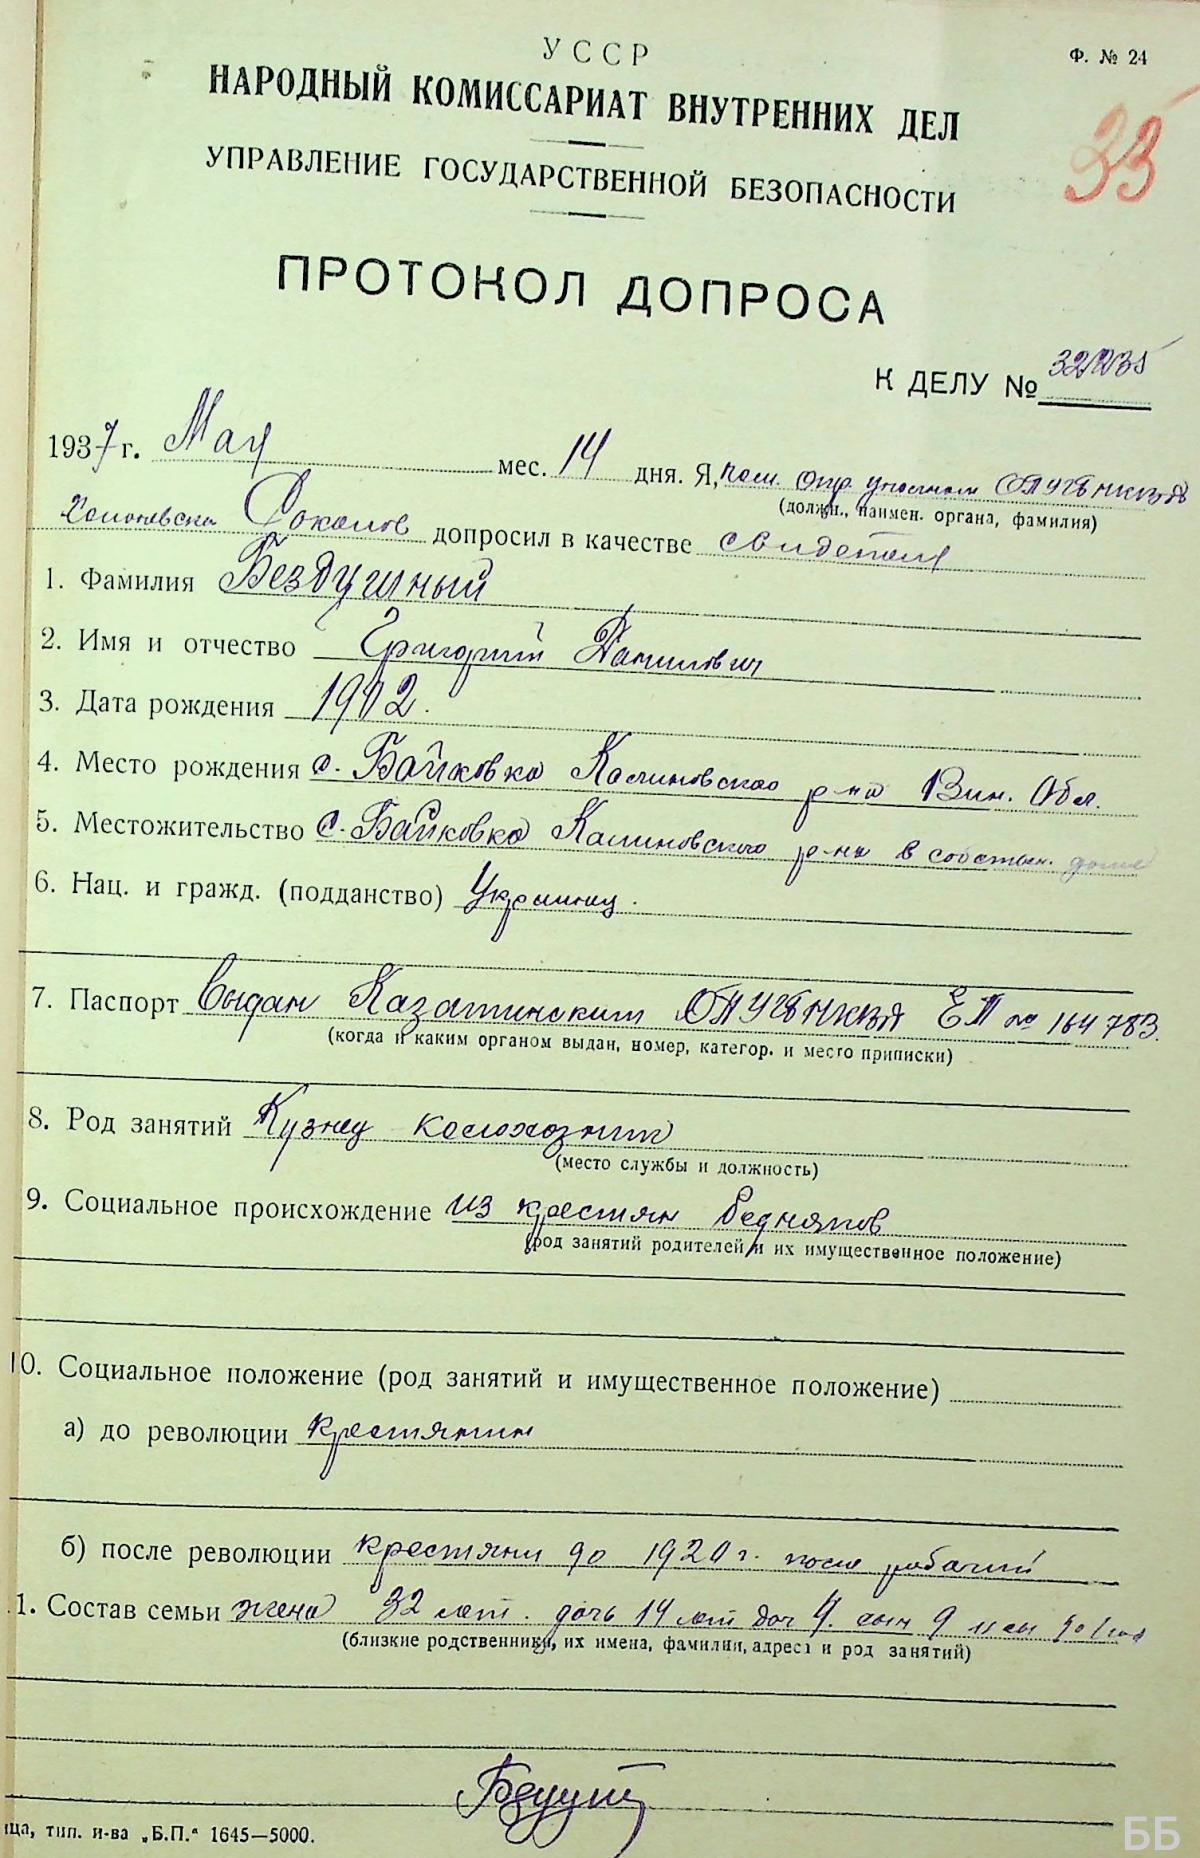 УССР
Ф. № 24
НАРОДНЫЙ КОМИССАРИАТ ВНУТРЕННИХ ДЕЛ
33
УПРАВЛЕНИЕ ГОСУДАРСТВЕННОЙ БЕЗОПАСНОСТИ
ПРОТОКОЛ ДОПРОСА
К ДЕЛУ № 32235
1937 г. Мая мес. 14 дня. Я, пом. опер уполном ОПУГБНКВД
(должн., наимен. органа, фамилия)
Соколов допросил в качестве свидетеля
1. Фамилия Бездушный
2. Имя и отчество Григорий Данилович
3. Дата рождения 1902.
4. Место рождения с. Байковка Калиновского р-на Вин. Обл.
5. Местожительство с. Байковка Калиновского р-на в собствен. доме
6. Нац. и гражд. (подданство) Украинец.
7. Паспорт Выдан Казатинским ОПУГБНКВД ЕП № 164783.
(когда и каким органом выдан, номер, категор. и место приписки)
8. Род занятий Кузнец колхозник
(место службы и должность)
9. Социальное происхождение из крестьян бедняков
(род занятий родителей и их имущественное положение)
10. Социальное положение (род занятий и имущественное положение)
а) до революции крестянин
б) после революции крестянин до 1920 г. после рабочий
1. Состав семьи жена 32 лет. дочь 14 лет доч 4. сын 9
(близкие родственники, их имена, фамилии, адреса и род занятий)
ица, тип. и-ва „Б.П.“ 1645—5000.
ББ